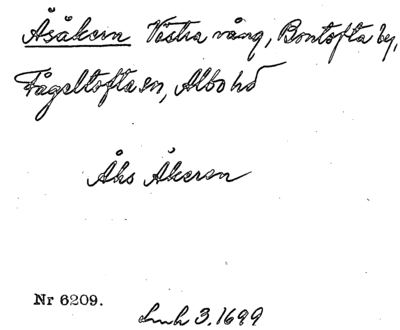 Åsåkern Västra vång, Bontofta by,
Fågeltofta sn, Albo hd
Åhs Åkeren
Nr 6209.
Lmh 3. 1699